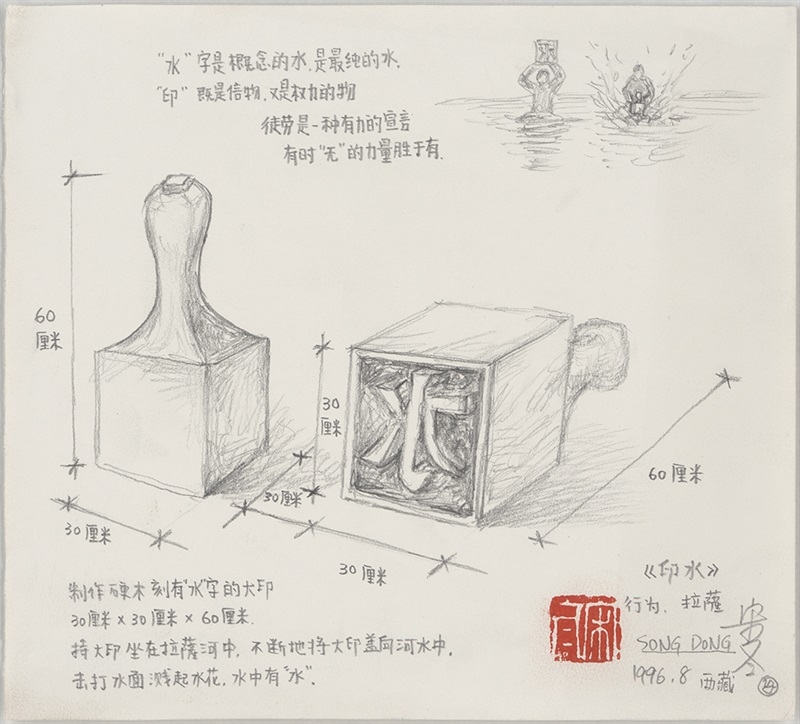 "水"字是概念的水,是最纯的水.
"印"既是信物,又是权力的物
徒劳是一种有力的宣言
有时"无"的力量胜于有.
水
60
厘米
30
厘米
30厘米
30厘米
30厘米
60厘米
制作硬木刻有"水"字的大印
30厘米×30厘米×60厘米.
持大印坐在拉萨河中,不断地将大印盖向河水中,
击打水面溅起水花,水中有"水".
《印水》
行为、拉萨
SONG DONG
1996.8 西藏
24